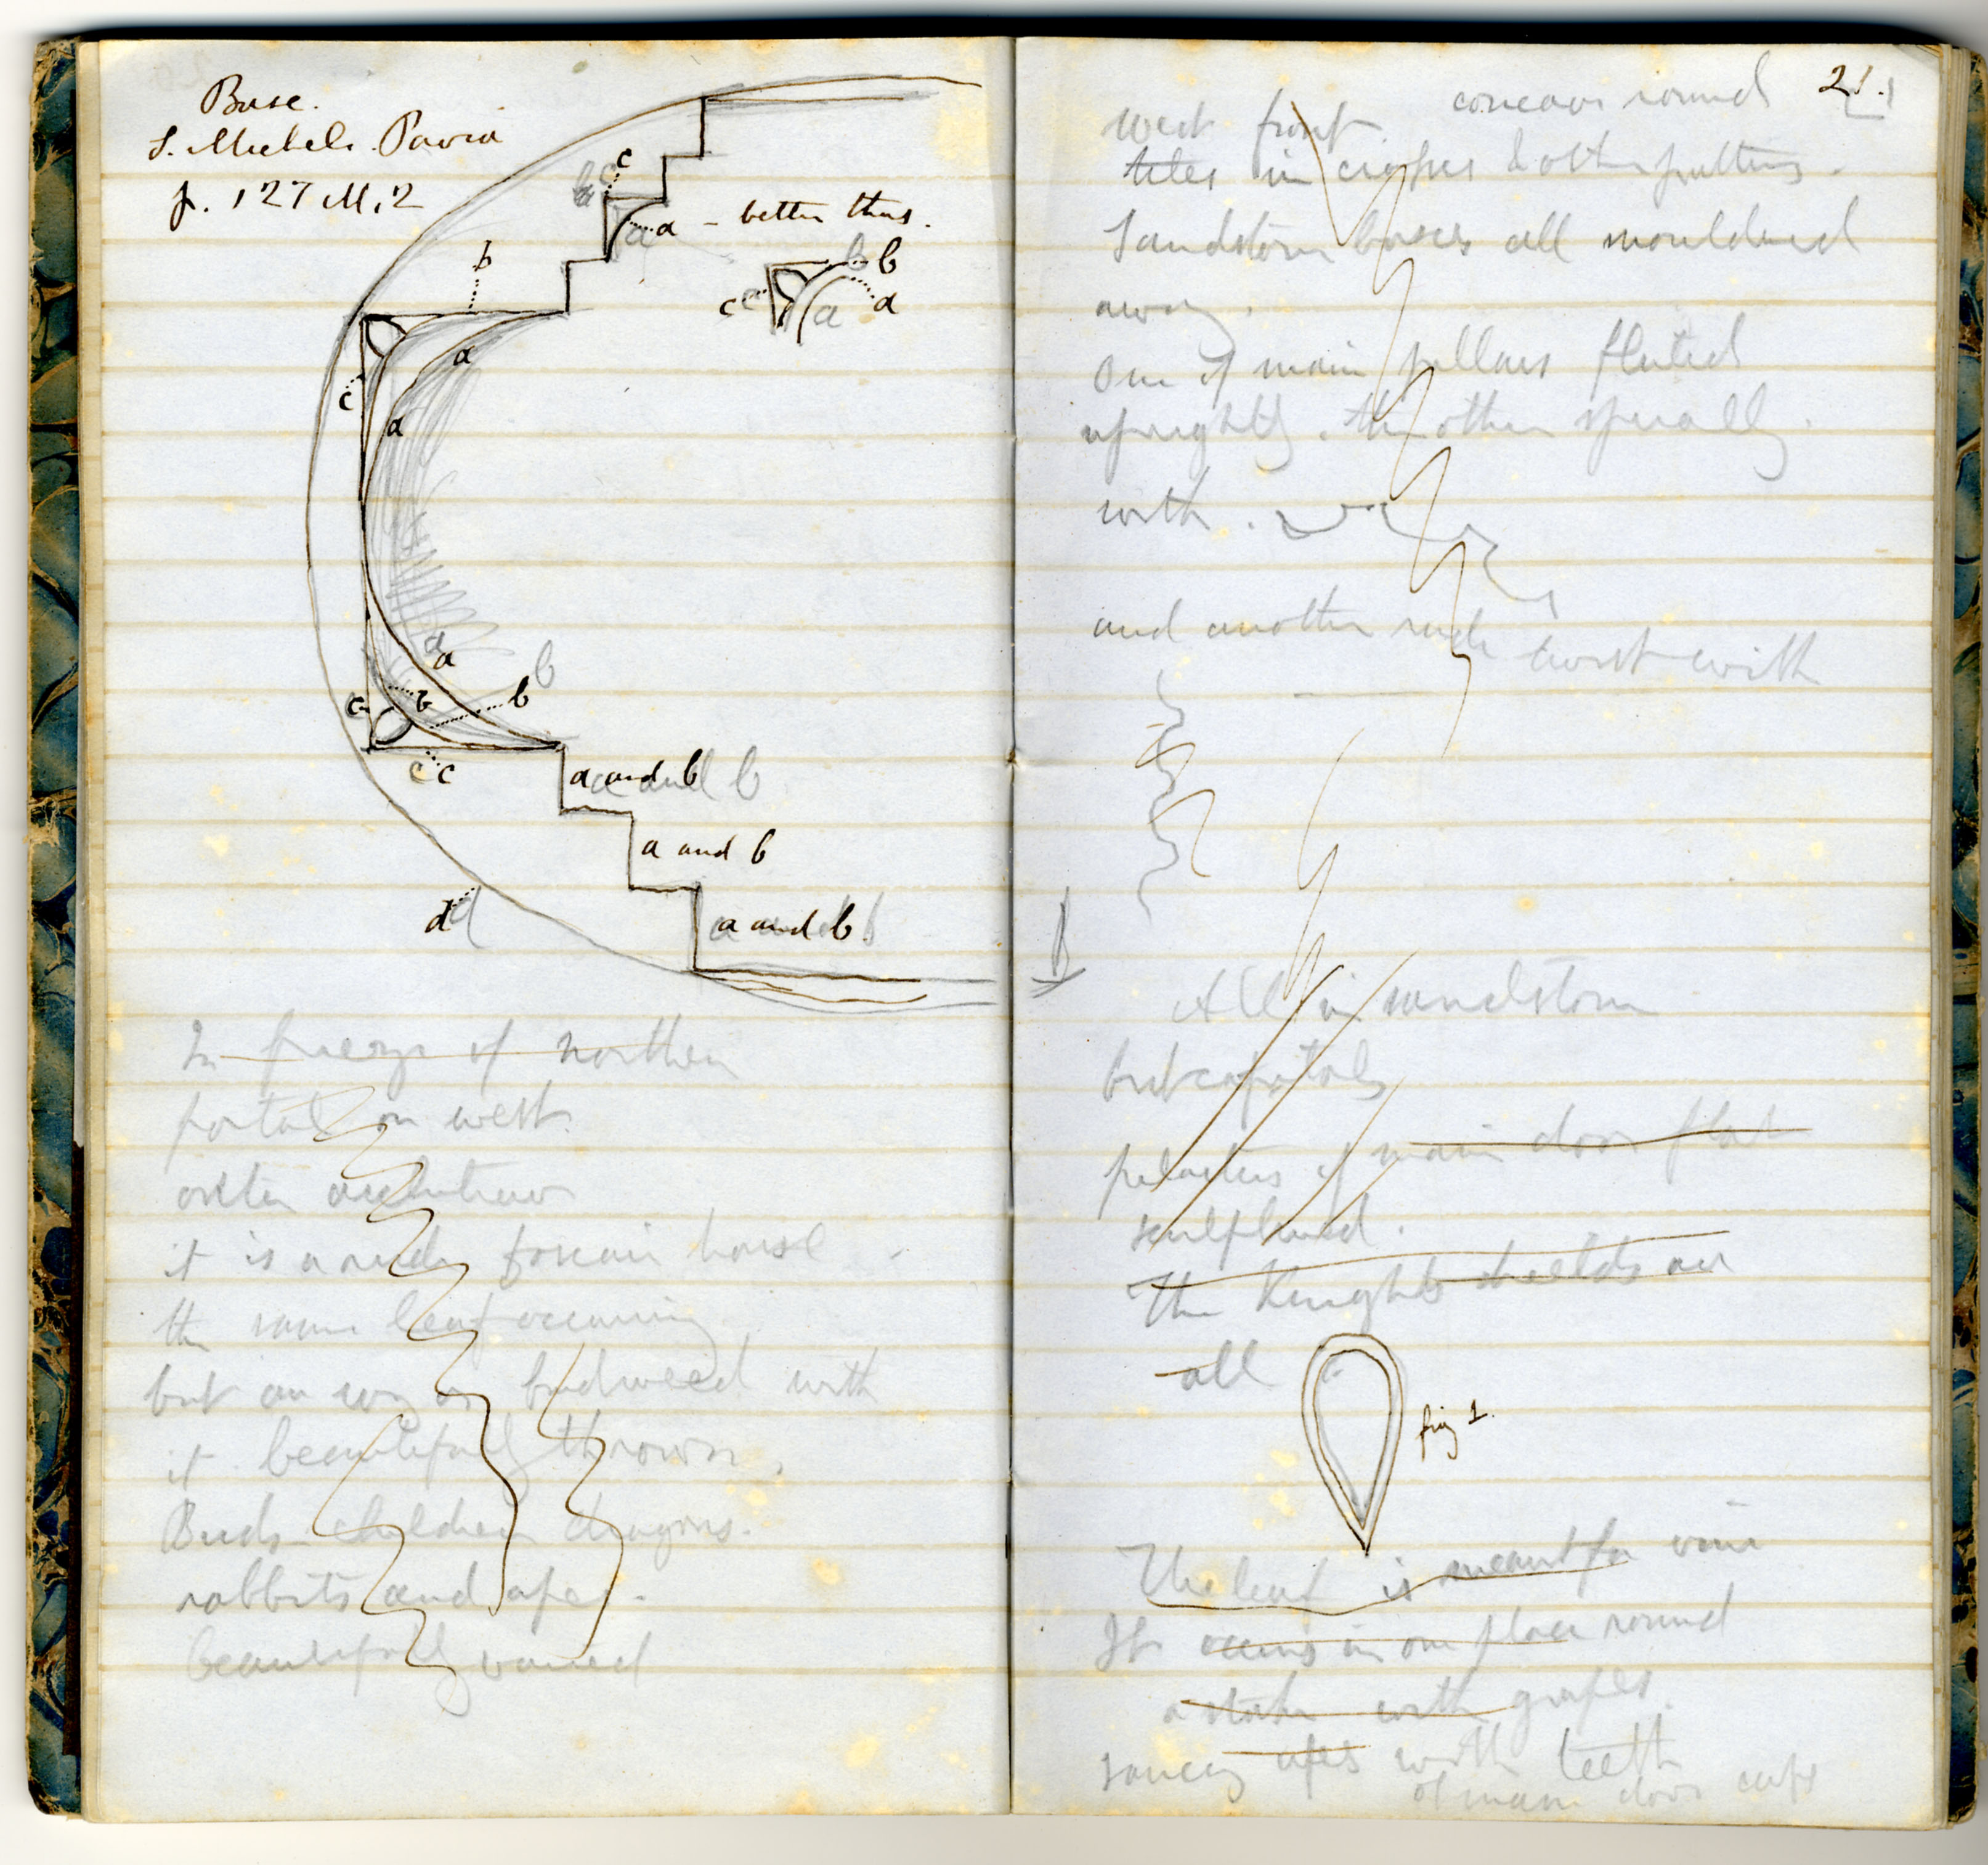 Base.
S. Michele. Pavia
p. 127 M. 2
c
a – better thus.
b
b
c
a
a
c
a
a
b
c
b
c
a and b
a and b
d
a and b
In frieze of northern
portal on west.
it is a rude
the same leaf occurring
but an ivy or bindweed with
it beautifully thrown.
Birds children dragons.
rabbits and apes.
beautifully varied
21.
west front. concave round
tiles in crosses & other patterns.
Sandstone bases all mouldered
away.
One of main pillars fluted
uprightly. the other spirally.
with.
and another rude twist with
All in sandstone
but capitals
pilasters of main door flat
sculptured.
The Knights shields are
all
fig 1.
The leaf is meant for vine
It occurs in one place round
a stake with grapes.
saucy apes with teeth
of main door